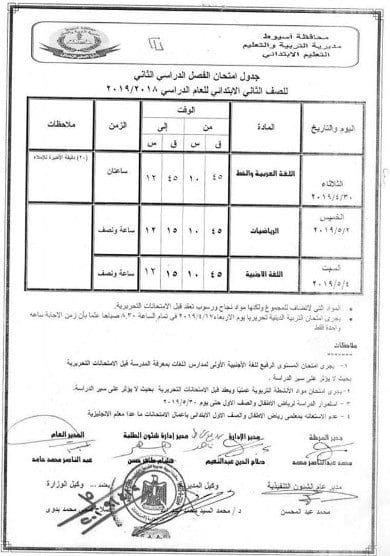 محافظة أسيوط
مديرية التربية والتعليم
التعليم الابتدائي
جدول امتحان الفصل الدراسي الثاني
للصف الثاني الابتدائي للعام الدراسي ٢٠١٩/٢٠١٨
اليوم والتاريخ المادة الوقت الزمن ملاحظات
من إلى
ق س ق س
الثلاثاء ٢٠١٩/٤/٣٠ اللغة العربية والخط ٤٥ ١٠ ٤٥ ١٢ ساعتان (٢٠) دقيقة الأخيرة للإملاء
الخميس ٢٠١٩/٥/٢ الرياضيات ٤٥ ١٠ ١٥ ١٢ ساعة ونصف
السبت ٢٠١٩/٥/٤ اللغة الأجنبية ٤٥ ١٠ ١٥ ١٢ ساعة ونصف
المواد التي لاتضاف للمجموع ولكنها مواد نجاح ورسوب تعقد قبل الامتحانات التحريرية.
يجرى امتحان التربية الدينية تحريريا يوم الاربعاء ٢٠١٩/٤/١٧ في تمام الساعة ٨.٣٠ صباحا علما بأن زمن الاجابة ساعة
واحدة فقط
ملاحظات
١ - يجرى امتحان المستوى الرفيع للغة الأجنبية الأولى لمدارس اللغات بمعرفة المدرسة قبل الامتحانات التحريرية
بحيث لا يؤثر على سير الدراسة .
٢ - يجرى امتحان مواد الأنشطة التربوية عمليا ويعقد قبل الامتحانات التحريرية بحيث لا يؤثر على سير الدراسة.
٣ - استمرار الدراسة لرياض الأطفال والصف الأول حتى يوم ٢٠١٩/٥/٣٠
٤ - عدم الاستعانة بمعلمي رياض الأطفال والصف الأول الابتدائي بأعمال الامتحانات ما عدا معلم الانجليزية
مدير المرحلة مدير الإدارة مدير إدارة شئون الطلبة المدير العام
محمد عبدالناصر محمد صلاح الدين عبدالنعيم هشام طاهر حسن عبد الناصر محمد حامد
مدير عام الشئون التنفيذية وكيل المديرية يعتمد وكيل الوزارة
محمد عبد المحسن د / محمد السيد محمد بدوى